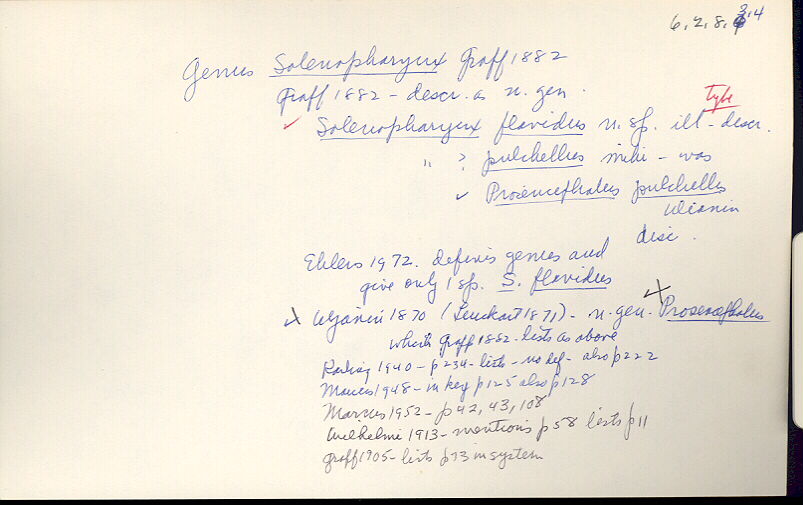 6, 2, 8, 3.4
Genus Solenopharynx Graff 1882
Graff 1882 - descr. as n. gen.
type
Solenopharynx flavidus n. sp. ill - descr.
" ? pulchellus mihi - was
Prosencephalus pulchellus
Ulianin
disc.
Ehlers 1972. defines genus and
give only 1 sp. S. flavidus
Uljanin 1870 (Leuckart 1871) - n. gen. Prosencephalus
which Graff 1882 - lists as above
Karling 1940 - p 234 - lists - no def - also p 222
Marcus 1948 - in key p 125 also p 128
Marcus 1952 - p 42, 43, 108
Wilhelmi 1913 - mentions p 58 lists p 11
Graff 1905 - lists p 73 in system